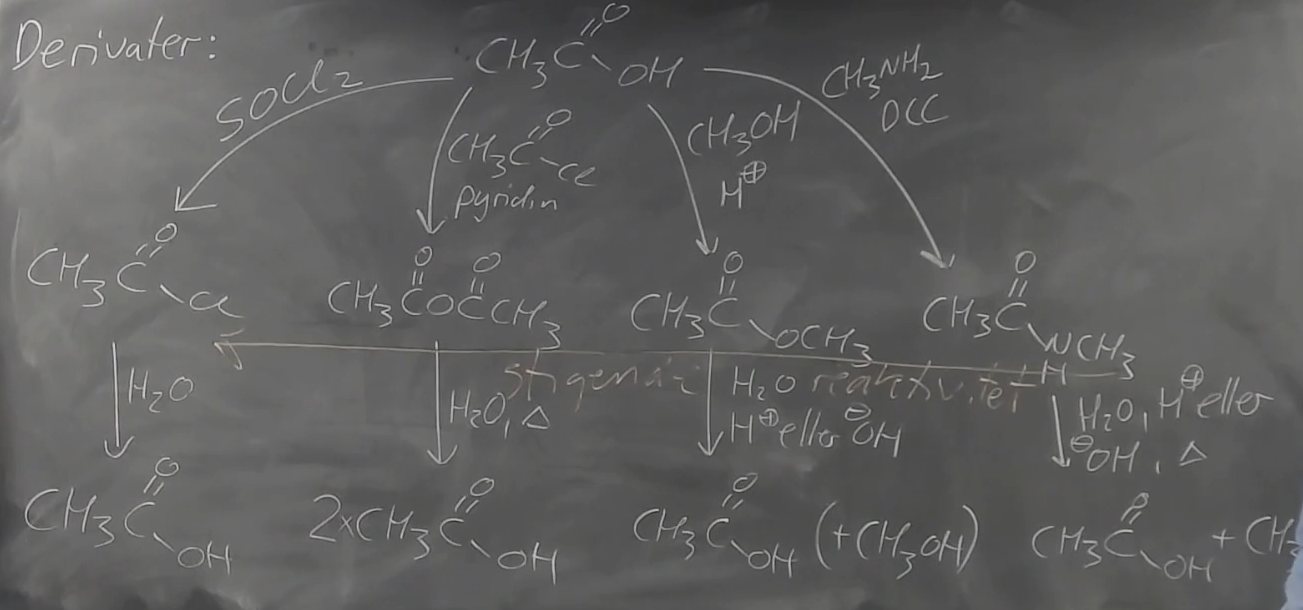 Derivater:
CH₃C(=O)OH
SOCl₂
CH₃C(=O)Cl
pyridin
CH₃OH
H⊕
CH₃NH₂
DCC
CH₃C(=O)Cl
CH₃C(=O)OC(=O)CH₃
CH₃C(=O)OCH₃
CH₃C(=O)NHCH₃
stigende reaktivitet
H₂O
H₂O, Δ
H₂O
H⊕ eller ⊖OH
H₂O, H⊕ eller
⊖OH, Δ
CH₃C(=O)OH
2xCH₃C(=O)OH
CH₃C(=O)OH (+CH₃OH)
CH₃C(=O)OH + CH₃